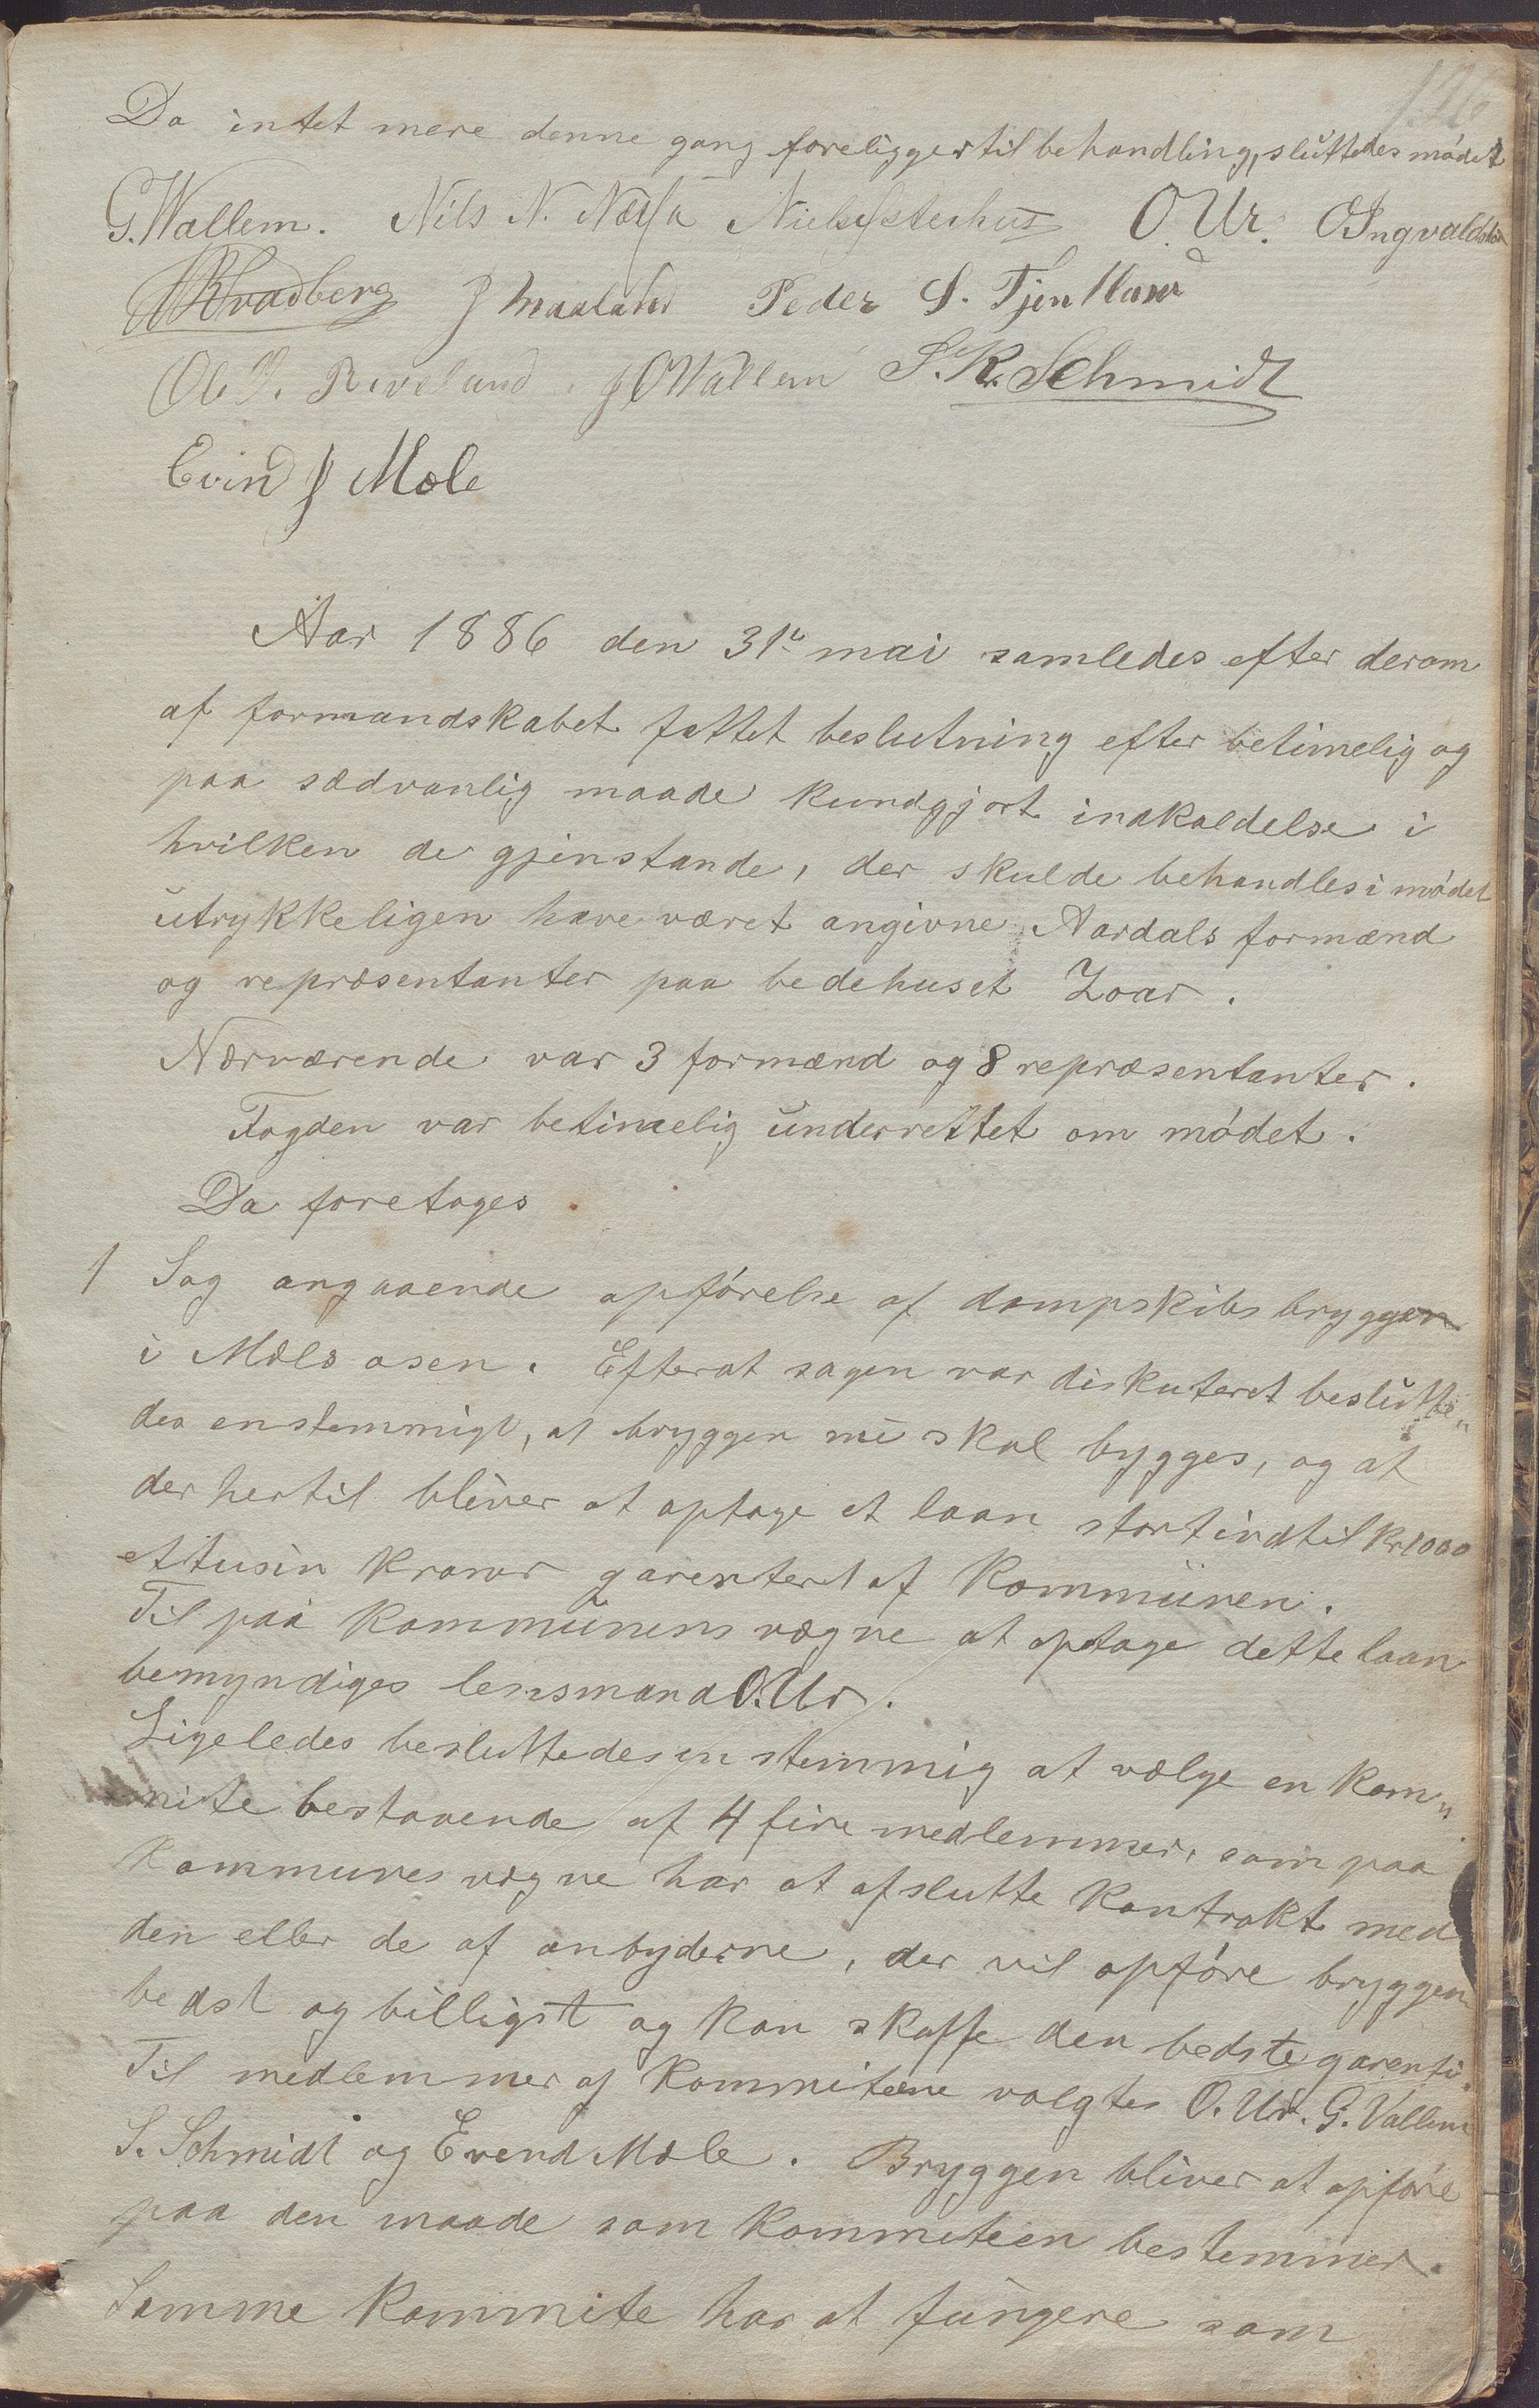 126
Da intet mere denne gang foreligger til behandling, sluttedes mødet
G. Wallem. Nils N. Næsa O. Ur. O Ingvaldsen
Peder S. Tjentland
Ole O. Riveland. J O Wallem S. K. Schmidt
Evind J Mæle
Aar 1886 den 31te mai samledes efter derom
af formandskabet fattet beslutning efter betimelig og
paa sædvanlig maade kundgjort indkaldelse i
hvilken de gjenstande, der skulde behandles i mødet
utrykkeligen have været angivne Aardals formænd
og repræsentanter paa bedehuset Zoar.
Nærværende var 3 formænd og 8 repræsentanter.
Fogden var betimelig underrettet om mødet.
Da foretoges
1 Sag angaaende opførelse af dampskibs bryggen
i Mæls osen. Efterat sagen var diskuteret beslutte„
des enstemmigt, at bryggen nu skal bygges, og at
der hertil bliver at optage et laan stort indtil Kr 1000
ettusin kroner garenteret af Kommunen.
Til paa Kommunens vægne at optage dette laan
bemyndiges lensmand O. Ur.
Ligeledes besluttedes en stemmig at vælge en kom„
mite bestaaende af 4 fire medlemmer, som paa
Kommunes vægne har at afslutte Kontrakt med
den eller de af anbyderne, der vil opføre bryggen
bedst og billigst og kan skaffe den bedste garenti.
Til medlemmer af Kommiteene valgtes O. Ur. G. Vallem
S. Schmidt og Evend Mæle. Bryggen bliver at opføre
paa den maade som Kommiteen bestemmer.
Samme Kommite har at fungere som